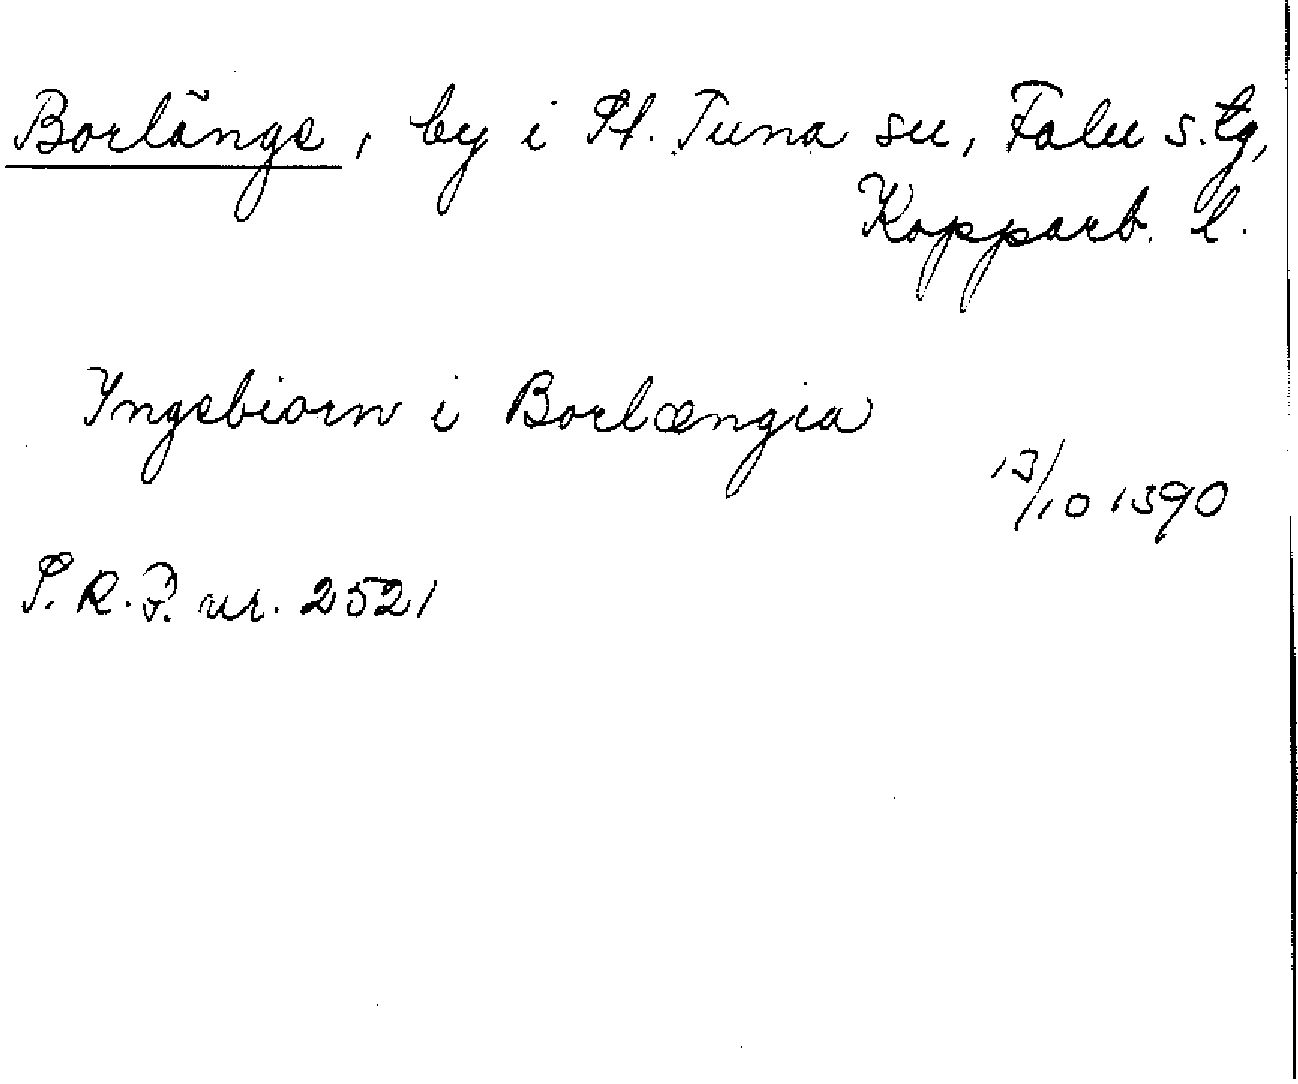 Borlänge, by i St. Tuna sn, Falu s. tg,
Kopparb. l.
Yngebiorn i Borlængia
13/10 1390
S.R.P. nr. 2521